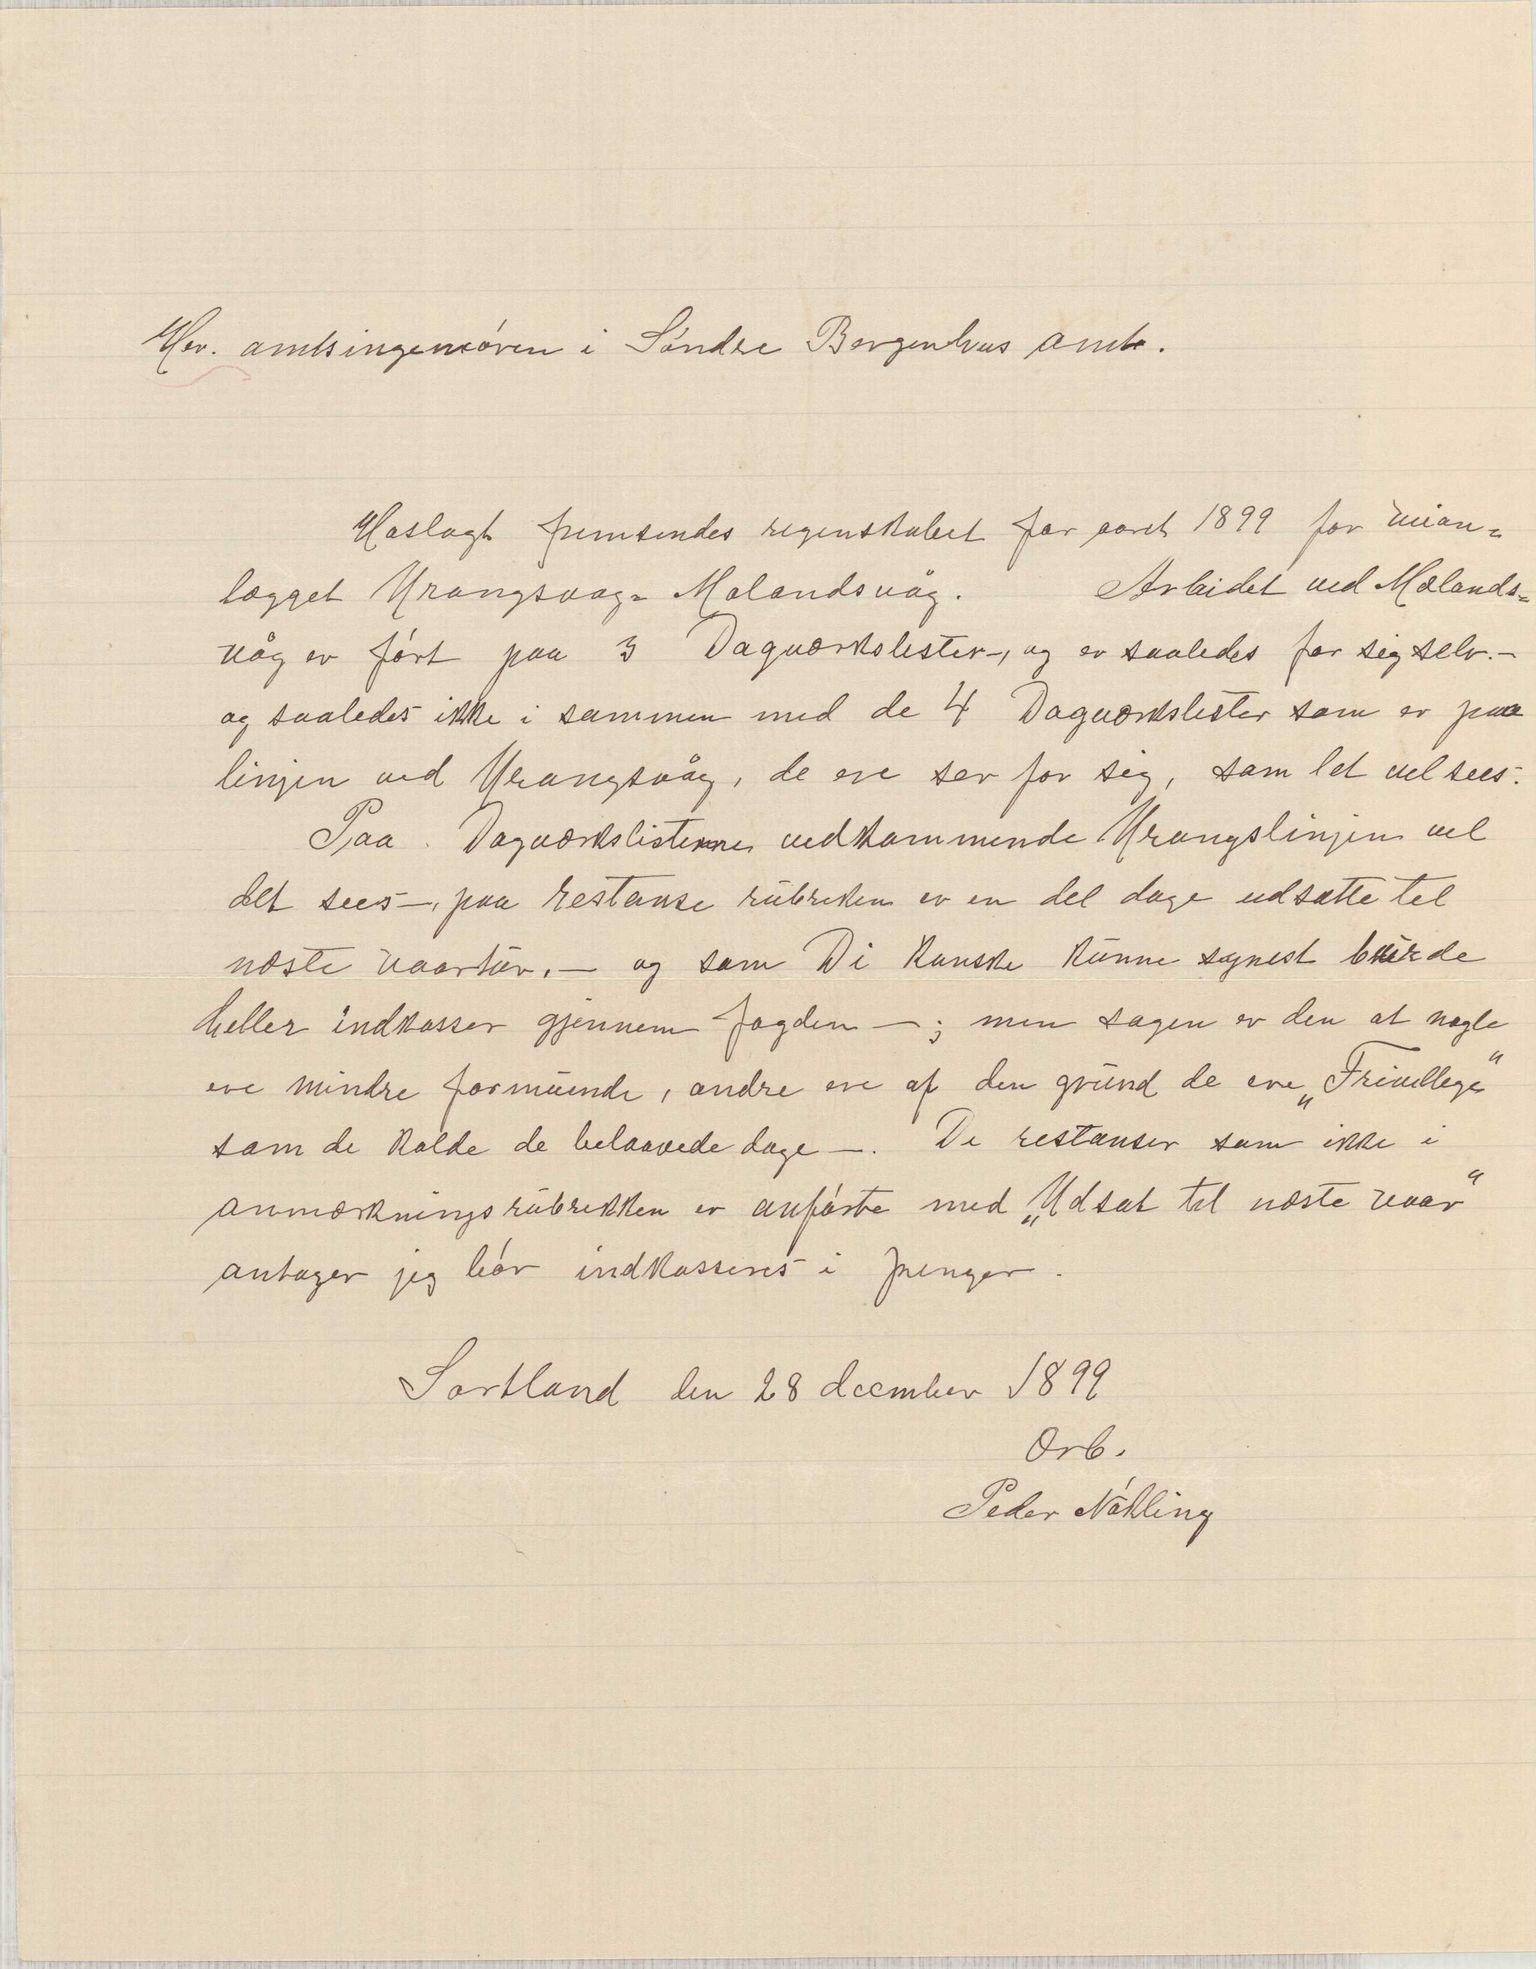 Her. amtsingeniøren i Søndre Bergenhus amt.
Hoslagt fremsendes regenskabet for aaret 1899 for veian=
lægget Urangsvag= Mælandsvåg. Arbeidet ved Mælands=
våg er ført paa 3 Dagværkslister-, og er saaledes for sig selv.-
og saaledes ikke i sammen med de 4 Dagværkslister som er paa
linjen ved Urangsvåg, de ere ser for sig, som let vel sees.
Paa Dagværkslisterne vedkommende Urangslinjen vel
det sees-, paa restanse rubreken er en del dage udsatte tel
næste vaartur. — og som De kanske kunne synest burde
heller indkasser gjennem fogden — ; men sagen er den at nogle
ere mindre formuende, andre ere af den grund de ere „Frivellege“
som de kalde de belaavede dage —. De restanser som ikke i
anmærkningsrubrekken er anførte med „Udsat til næste vaar“
antager jeg bør indkasseres i penger.
Sortland den 28 december 1899
Ærb.
Peder Nökling